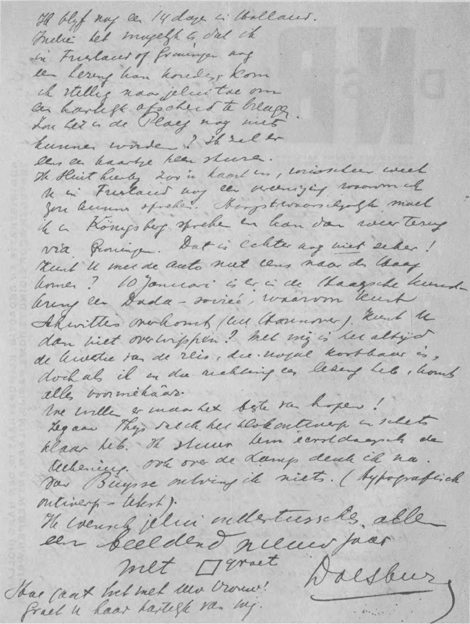 Ik blijf nog een 14 dagen in Holland.
Indien het mogelijk is dat ik
in Friesland of Groningen nog
een lezing kan houden, kom
ik stellig naar jelui toe om
een hartelijk afscheid te brengen.
Zou het in de Ploeg nog niet
kunnen worden? Ik zal er
eens een kaartje heen sturen.
Ik sluit hierbij zoo'n kaart in, misschien weet
u in Friesland nog een vereeniging waarvoor ik
zou kunnen spreken. Hoogstwaarschijnlijk moet
ik in Königsberg spreken en kan dan weer terug
via Groningen. Dat is echter nog niet zeker!
Kunt u met de auto niet eens naar den Haag
komen? 10 Januari is er in de Haagsche Kunst-
kring een Dada-soirée, waarvoor Kurt
Schwitters overkomt (uit Hannover). Kunt u
dan niet overwippen? Met mij is het altijd
de kwestie van de reis, die nogal kostbaar is,
doch als ik in die richting een lezing heb, komt
alles voor elkaar.
We willen er maar het beste van hopen!
Zeg aan Thijs dat ik het klokontwerp in schets
klaar heb. Ik stuur hem eerstdaags de
teekening. Ook over de Lamp denk ik na.
Van Buysse ontving ik niets. (typografisch
ontwerp -
Ik wensch jelui ondertusschen allen
een beeldend nieuw jaar
met □ groet
Doesburg
Hoe gaat het met Uw Vrouw?
Groet U haar hartelijk van mij.